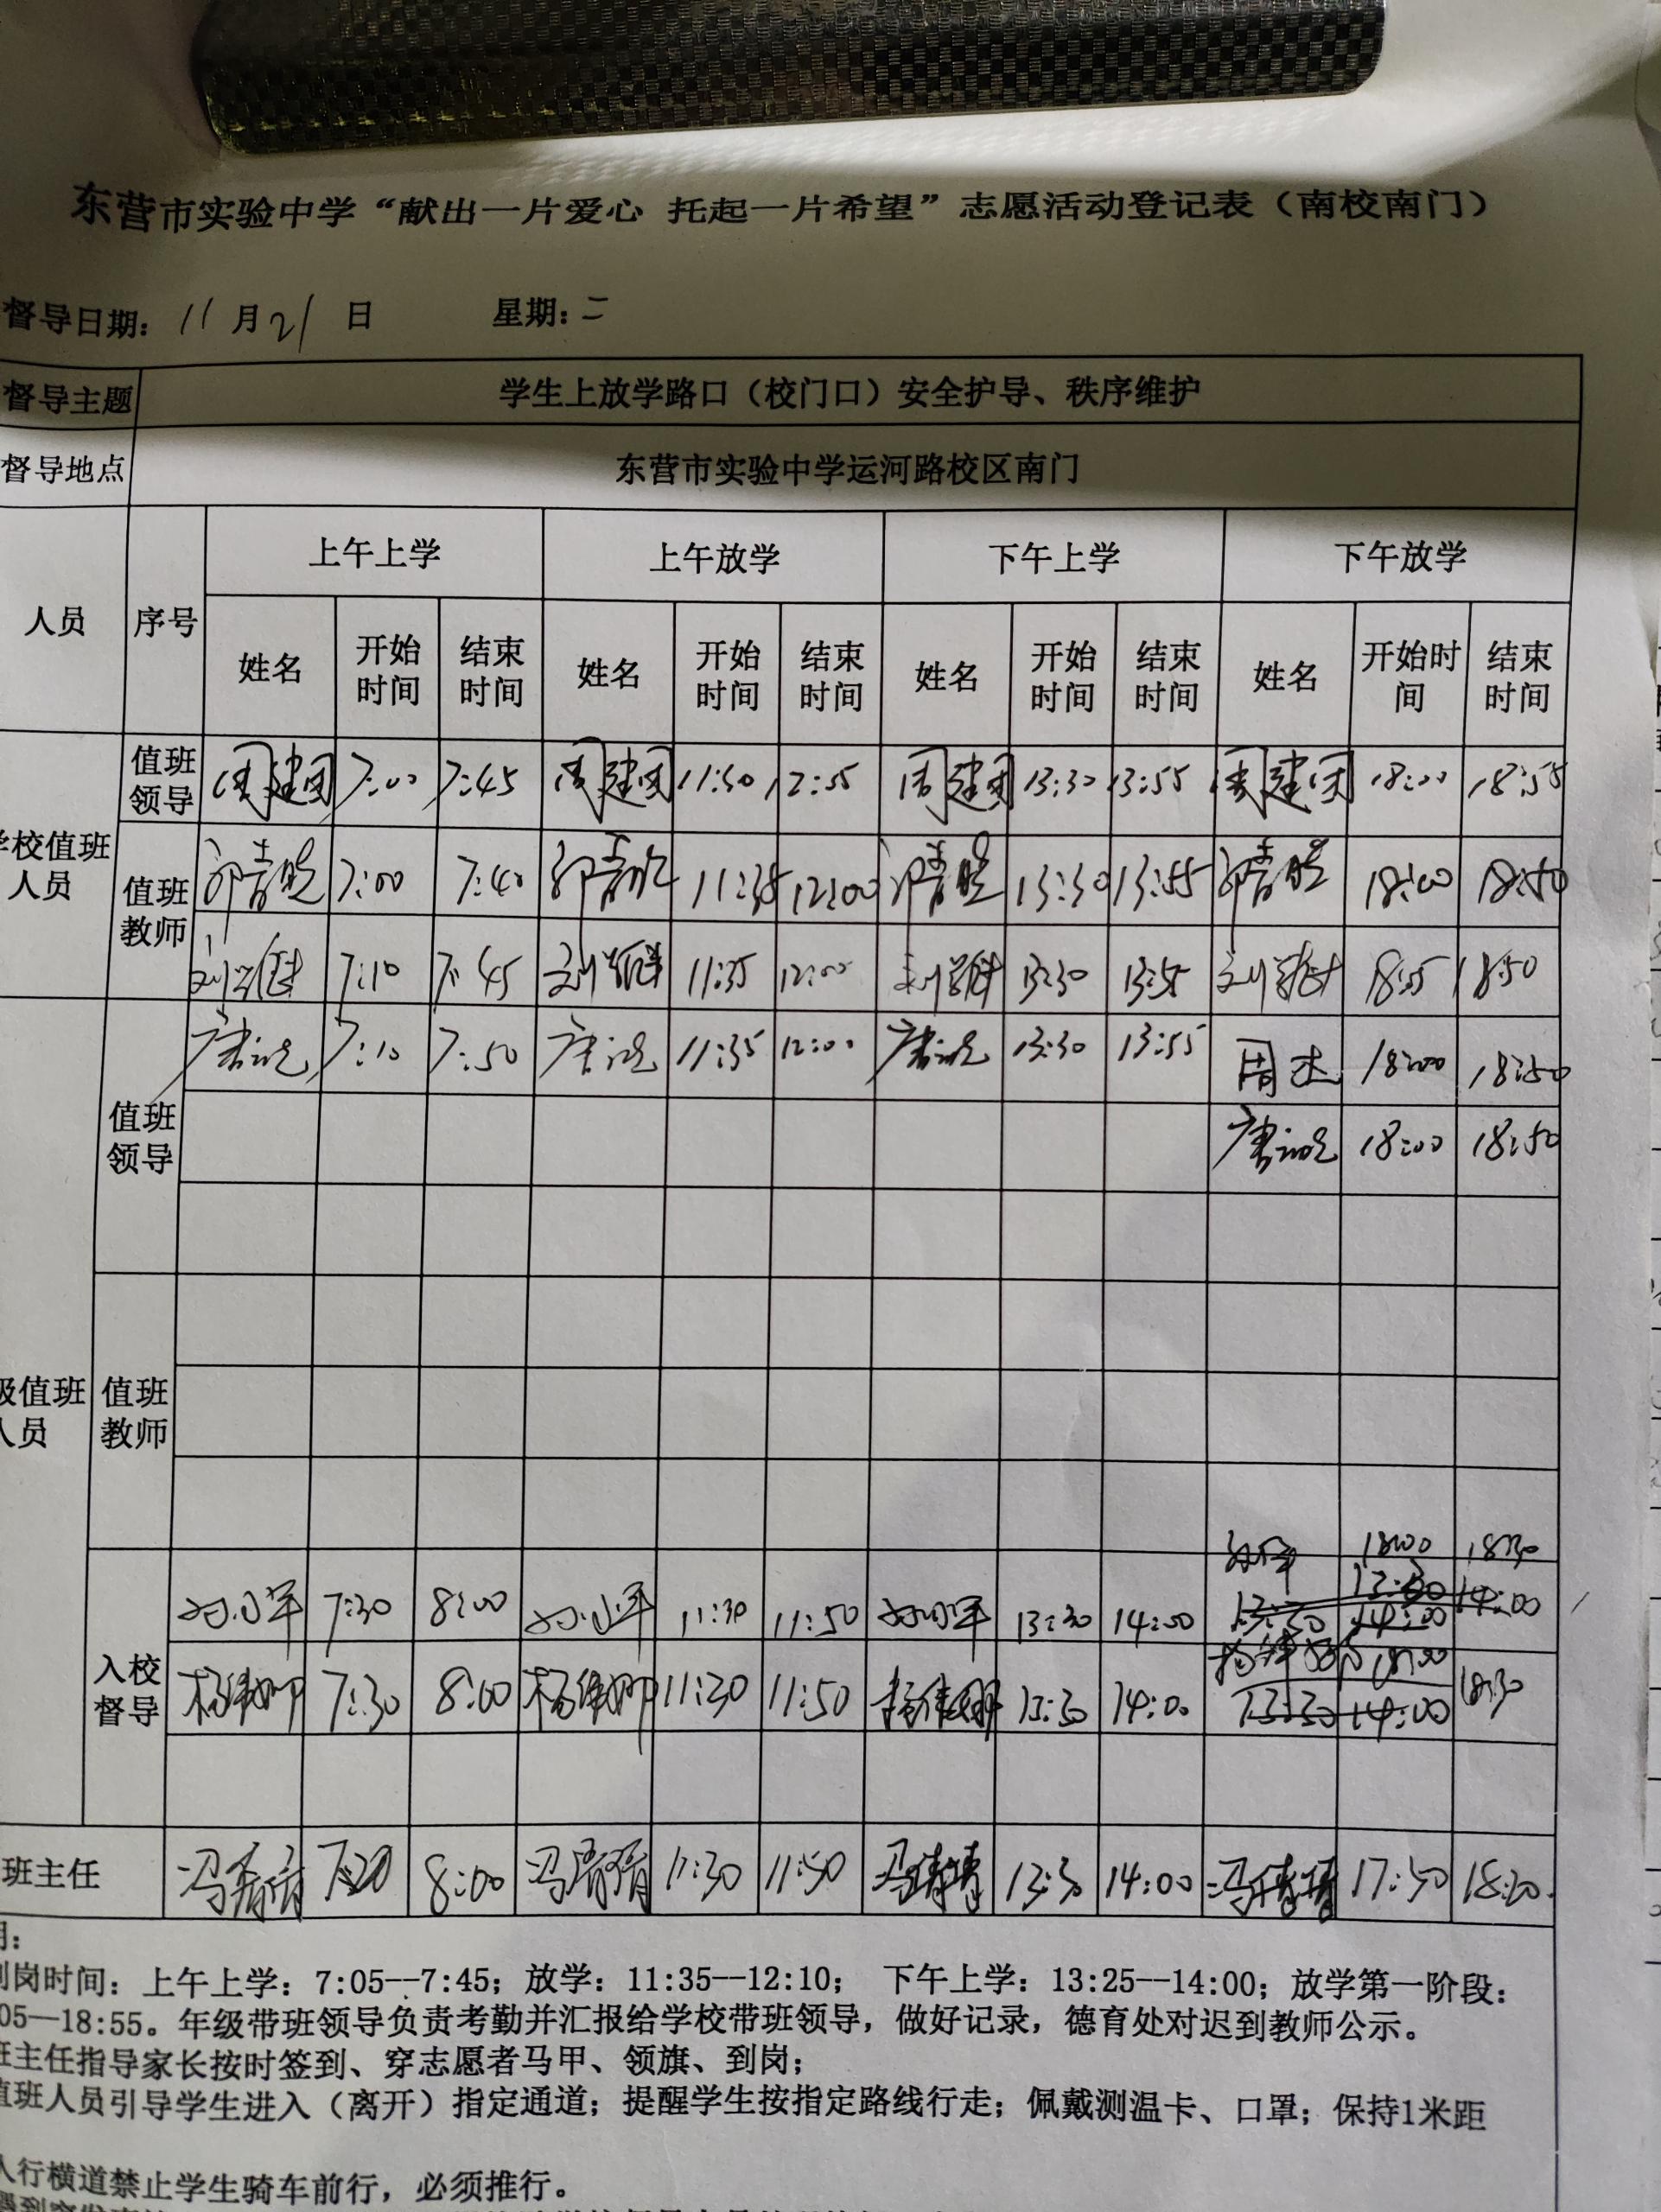 东营市实验中学“献出一片爱心 托起一片希望”志愿活动登记表（南校南门）
督导日期：11月21日 星期：二
督导主题 学生上放学路口（校门口）安全护导、秩序维护
督导地点 东营市实验中学运河路校区南门
人员 序号 上午上学 上午放学 下午上学 下午放学
姓名 开始时间 结束时间 姓名 开始时间 结束时间 姓名 开始时间 结束时间 姓名 开始时间 结束时间
校值班人员 值班领导 周建国 7:00 7:45 周建国 11:30 12:55 周建国 13:30 13:55 周建国 18:00 18:55
值班教师 7:00 7:40 11:35 12:00 13:30 13:55 18:00 18:50
7:10 7:45 11:35 12:00 13:30 13:55 18:50
值班领导 7:10 7:50 11:35 12:00 13:30 13:55 周杰 18:00 18:50
18:00 18:50
级值班人员 值班教师
18:00 18:30
入校督导 7:30 8:00 11:30 11:50 13:30 14:00 13:30 14:00 14:00
7:30 8:00 11:30 11:50 13:30 14:00 18:00 18:30
13:30 14:00
班主任 冯倩倩 7:20 8:00 冯倩倩 11:30 11:50 冯倩倩 13:30 14:00 冯倩倩 17:50 18:20
到岗时间：上午上学：7:05--7:45；放学：11:35--12:10； 下午上学：13:25--14:00；放学第一阶段：
05—18:55。年级带班领导负责考勤并汇报给学校带班领导，做好记录，德育处对迟到教师公示。
班主任指导家长按时签到、穿志愿者马甲、领旗、到岗；
值班人员引导学生进入（离开）指定通道；提醒学生按指定路线行走；佩戴测温卡、口罩；保持1米距
人行横道禁止学生骑车前行，必须推行。